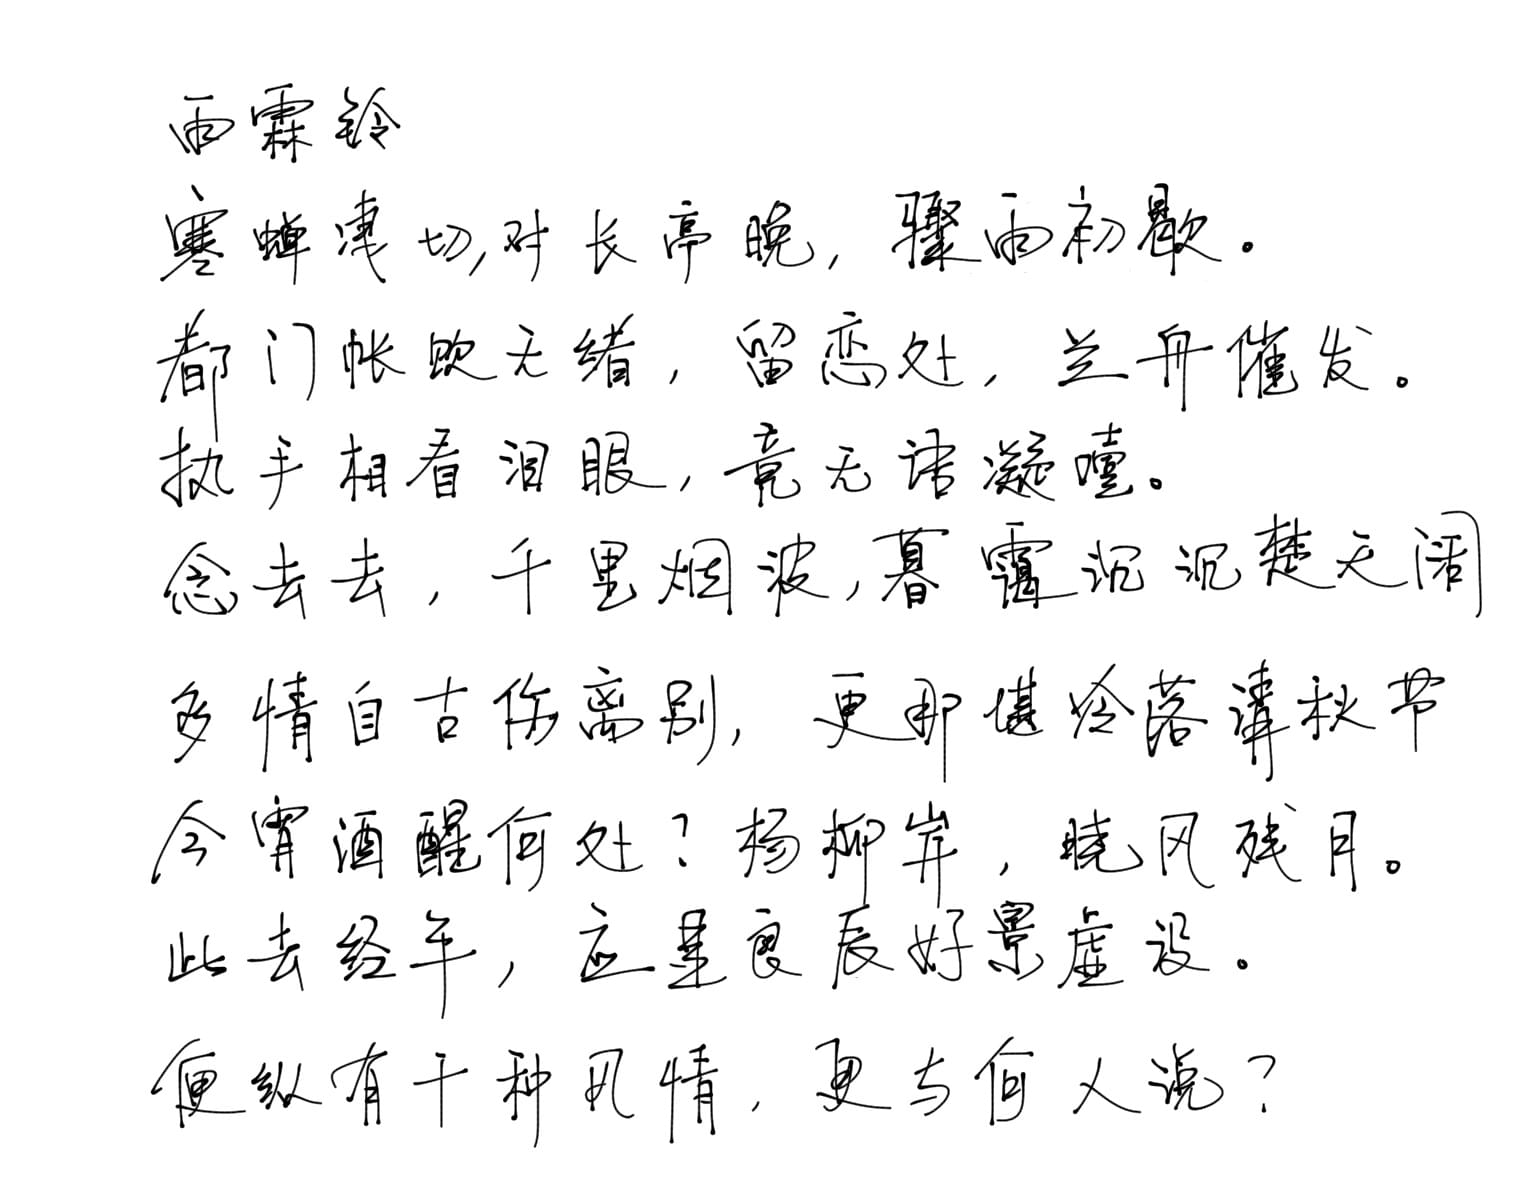 雨霖铃
寒蝉凄切,对长亭晚,骤雨初歇。
都门帐饮无绪,留恋处,兰舟催发。
执手相看泪眼,竟无语凝噎。
念去去,千里烟波,暮霭沉沉楚天阔
多情自古伤离别,更那堪冷落清秋节
今宵酒醒何处?杨柳岸,晓风残月。
此去经年,应是良辰好景虚设。
便纵有千种风情,更与何人说?